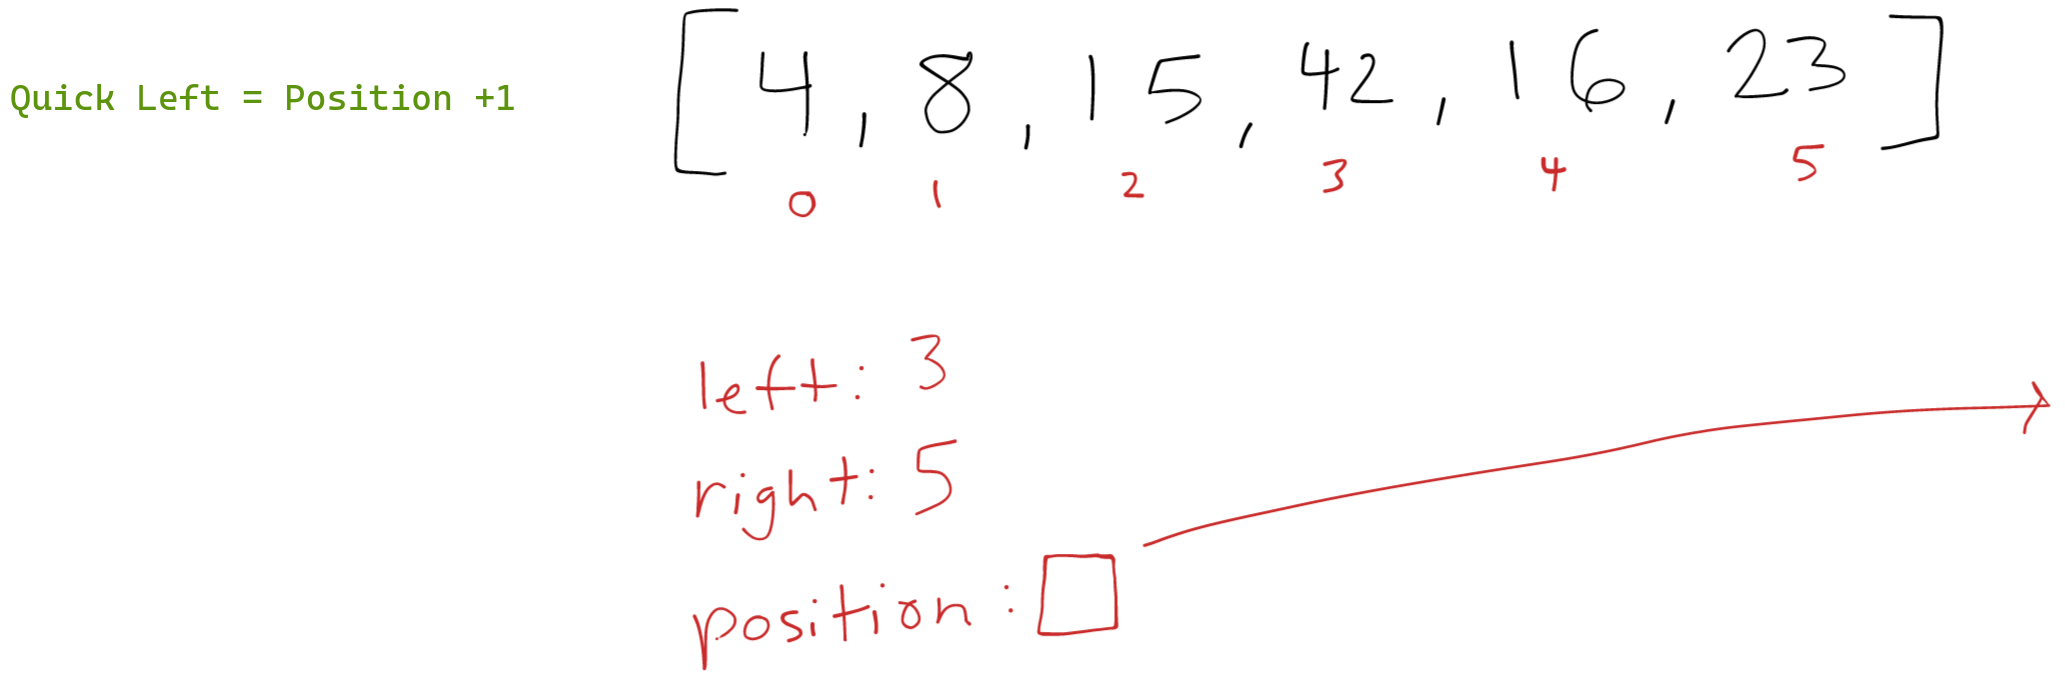 Quick Left = Position +1
[4, 8, 15, 42, 16, 23]
0 1 2 3 4 5
left: 3
right: 5
position: